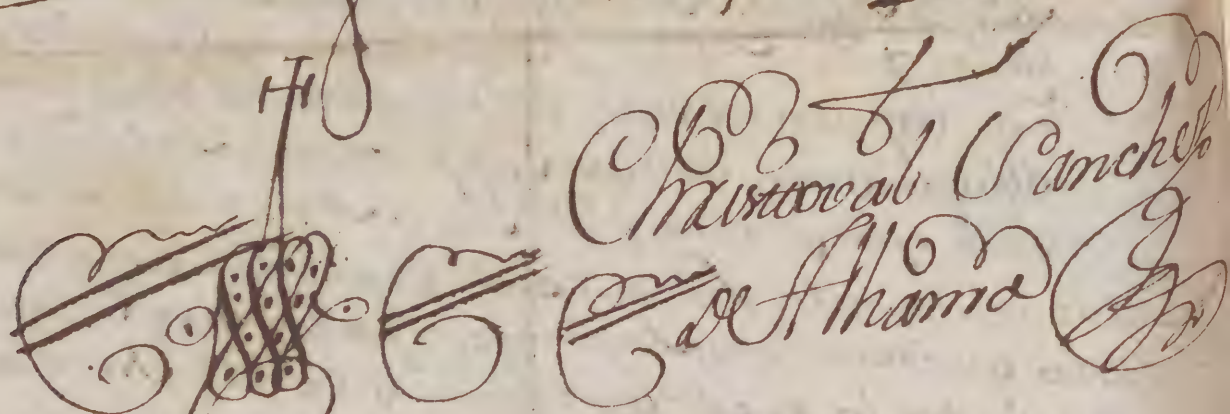 Christoval Sanches
de Alhama